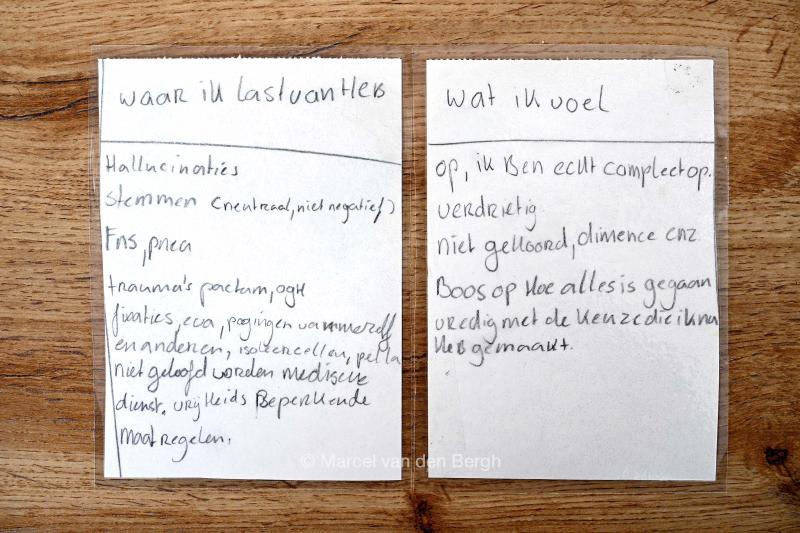 waar ik last van HeB
Hallucinaties
stemmen (neutraal, niet negatief)
Fns, pnea
trauma's pactum, ogh
fixaties, eva, pogingen van mezelf
en anderen, isoleercellen, pella
niet geloofd worden medische
dienst. vrijheids Beperkende
maatregelen.
wat ik voel
op, ik Ben echt compleet op.
verdrietig.
niet gehoord, dimence enz.
Boos op Hoe alles is gegaan
vredig met de keuze die ik nu
HeB gemaakt.
© Marcel van den Bergh